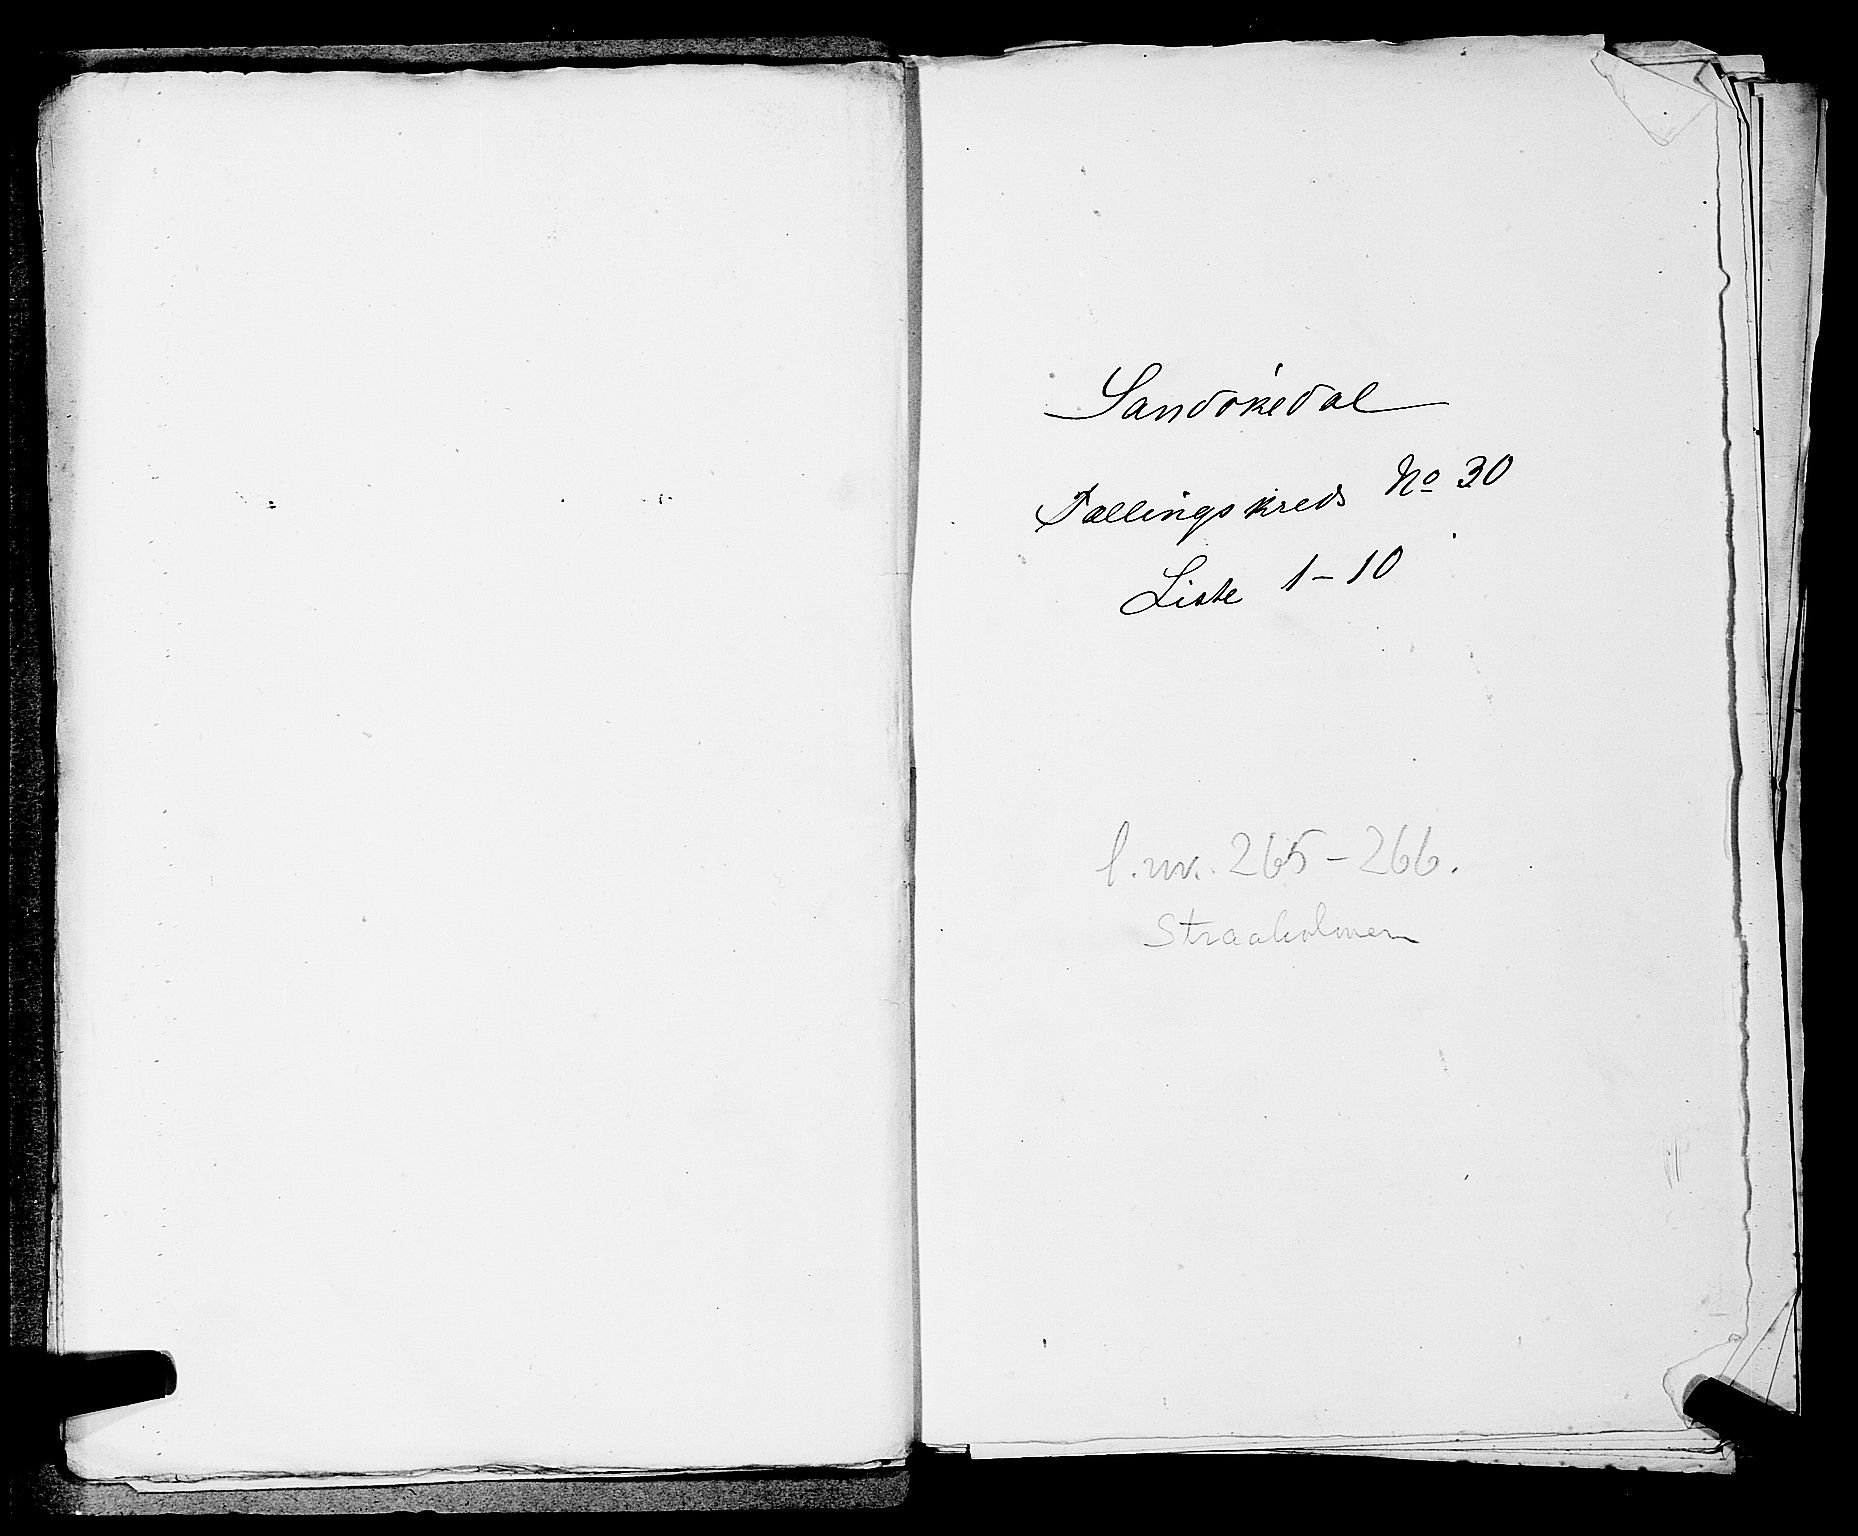 Sandøkedal
Tællingskreds No 30
Liste 1-10
l. nr. 265-266.
Straaholmen